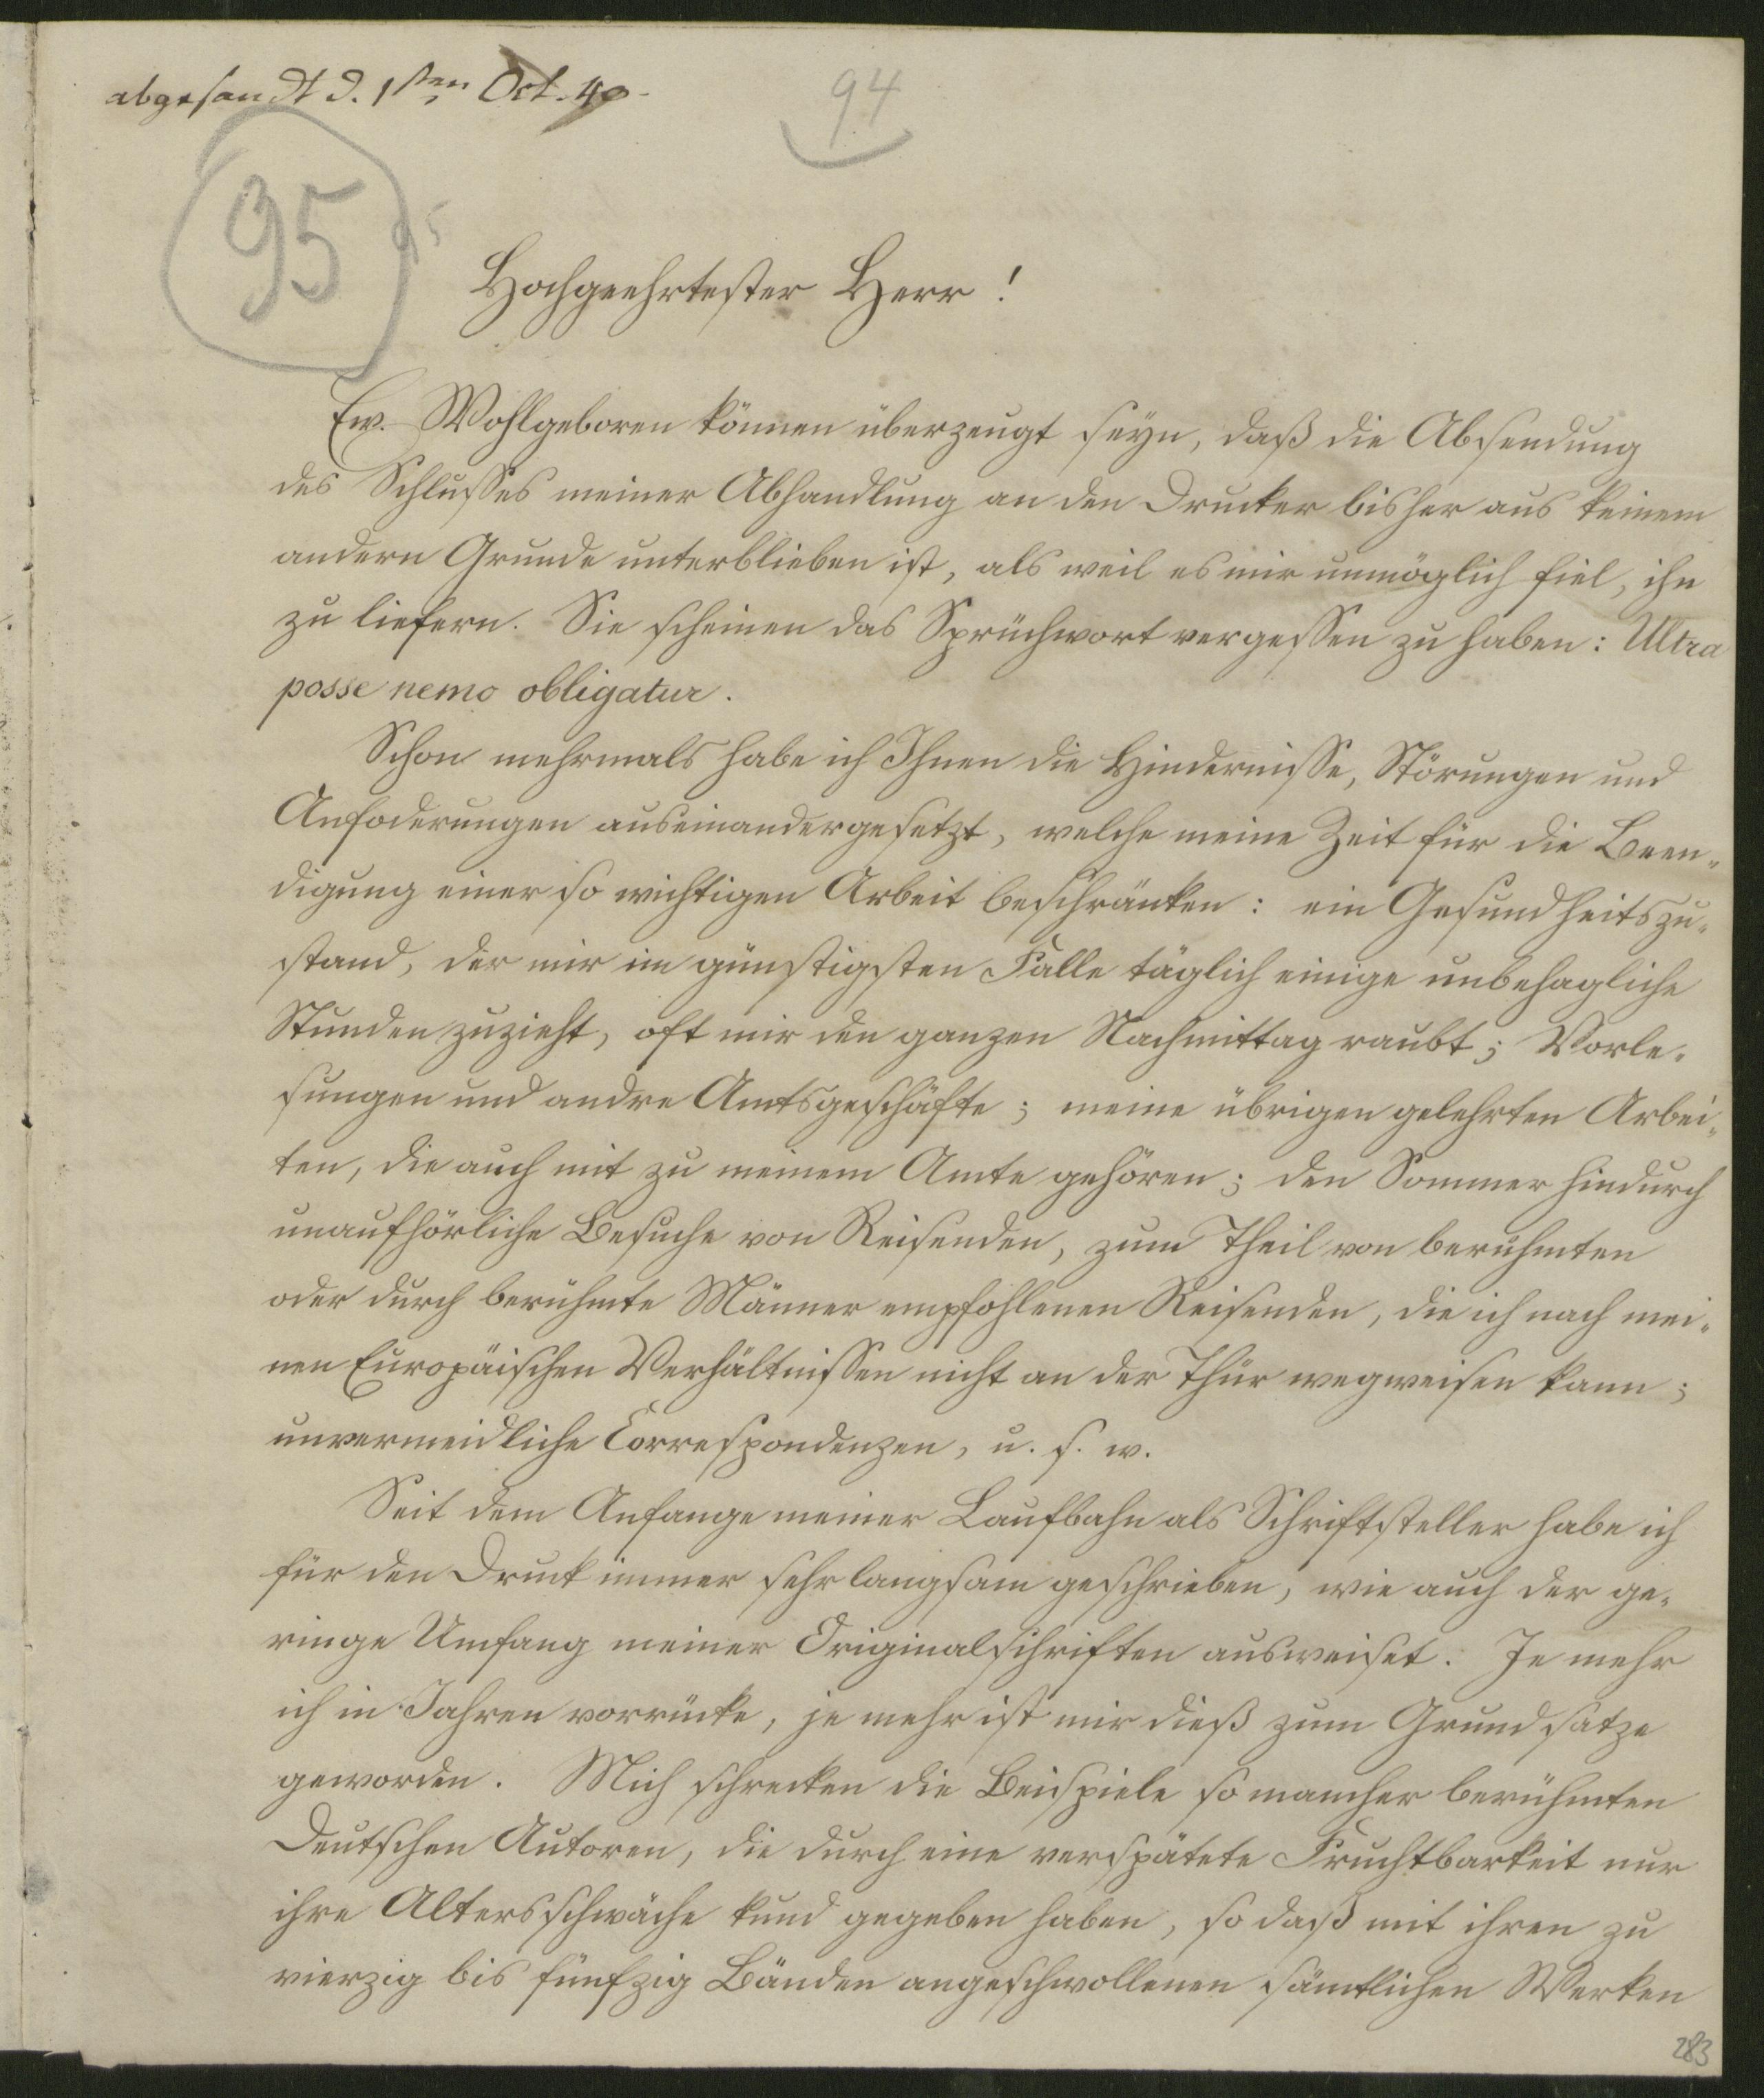 abgesandt d. 1sten Oct. 40.
94
95
95
Hochgeehrtester Herr!
Ew. Wohlgeboren können überzeugt seyn, daß die Absendung
des Schlusses meiner Abhandlung an den Drucker bisher aus keinem
andern Grunde unterblieben ist, als weil es mir unmöglich fiel, ihn
zu liefern. Sie scheinen das Sprüchwort vergessen zu haben: Ultra
posse nemo obligatur.
Schon mehrmals habe ich Ihnen die Hindernisse, Störungen und
Anfoderungen auseinandergesetzt, welche meine Zeit für die Been-
digung einer so wichtigen Arbeit beschränken: ein Gesundheitszu-
stand, der mir im günstigsten Falle täglich einige unbehagliche
Stunden zuzieht, oft mir den ganzen Nachmittag raubt; Vorle-
sungen und andre Amtsgeschäfte; meine übrigen gelehrten Arbei-
ten, die auch mit zu meinem Amte gehören; den Sommer hindurch
unaufhörliche Besuche von Reisenden, zum Theil von berühmten
oder durch berühmte Männer empfohlenen Reisenden, die ich nach mei-
nen Europäischen Verhältnissen nicht an der Thür wegweisen kann;
unvermeidliche Correspondenzen, u. s. w.
Seit dem Anfange meiner Laufbahn als Schriftsteller habe ich
für den Druck immer sehr langsam geschrieben, wie auch der ge-
ringe Umfang meiner Originalschriften ausweiset. Je mehr
ich in Jahren vorrücke, je mehr ist mir dieß zum Grundsatze
geworden. Mich schrecken die Beispiele so mancher berühmten
Deutschen Autoren, die durch eine verspätete Fruchtbarkeit nur
ihre Altersschwäche kund gegeben haben, so daß mit ihren zu
vierzig bis fünfzig Bänden angeschwollenen sämtlichen Werken
283